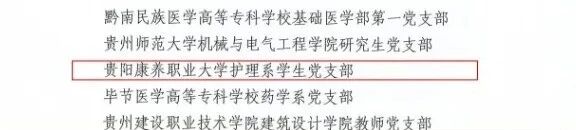 黔南民族医学高等专科学校基础医学部第一党支部
贵州师范大学机械与电气工程学院研究生党支部
贵阳康养职业大学护理系学生党支部
毕节医学高等专科学校药学系党支部
贵州建设职业技术学院建筑设计学院教师党支部